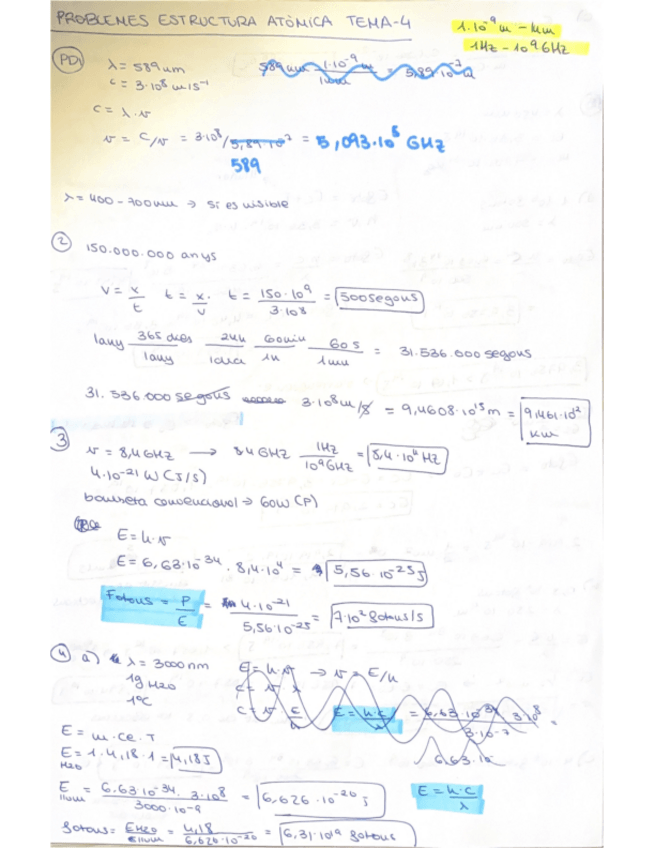 PROBLEMES ESTRUCTURA ATÒMICA TEMA-4
1·10⁻⁹ m - 1nm
1Hz - 10⁹ GHz
PD1
λ = 589 nm
c = 3·10⁸ m·s⁻¹
589 nm 1·10⁻⁹ m / 1nm = 5,89·10⁻⁷ m
c = λ·ν
ν = c/ν = 3·10⁸/5,89·10⁻⁷ = 5,093·10⁵ GHz
589
λ = 400 - 700nm → Sí es visible
2
150.000.000 anys
v = x/t t = x/v t = 150·10⁹ / 3·10⁸ = 500 segons
1 any 365 dies / 1 any 24h / 1 dia 60min / 1h 60 s / 1min = 31.536.000 segons
31.536.000 segons 3·10⁸ m/s = 9,4608·10¹⁵ m = 9,461·10¹² km
3
ν = 8,4 GHz → 8,4 GHz 1Hz / 10⁹ GHz = 8,4·10⁴ Hz
4·10⁻²¹ W (J/s)
bombeta convencional → 60W (P)
E = h·ν
E = 6,63·10⁻³⁴ · 8,4·10⁴ = 5,56·10⁻²⁵ J
Fotons = P/E = 4·10⁻²¹ / 5,56·10⁻²⁵ = 7·10² fotons/s
4 a) λ = 3000 nm
1g H2O
1ºC
E = h·ν → ν = E/h
c = ν·λ
E = h·c
E = m·ce·T
E H2O = 1·4,18·1 = 4,18 J
E llum = 6.63·10⁻³⁴ · 3·10⁸ / 3000·10⁻⁹ = 6,626·10⁻²⁰ J
E = h·c / λ
fotons = E H2O / E llum = 4,18 / 6,626·10⁻²⁰ = 6,31·10¹⁹ fotons